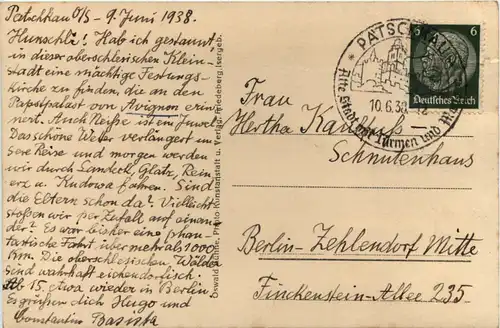 Patschkau O/S - 9. Juni 1938.
Hunschli! Hab ich gestaunt
in dieser oberschlesischen Klein-
stadt eine mächtige Festungs-
kirche zu finden, die an den
Papstpalast von Avignon erin-
nert. Auch Neiße ist ein Juwel
Das schöne Wetter verlängert un-
sere Reise und morgen werden
wir durch Landeck, Glatz, Rein-
erz u. Kudowa fahren. Sind
die Eltern schon da? Vielleicht
stoßen wir per Zufall auf einan-
der? Es war bisher eine phan-
tastische Fahrt über mehr als 1000
Km. Die oberschlesischen Wälder
sind wahrhaft eichendorffisch!
Ab 15. etwa wieder in Berlin
Es grüßen dich Hugo und
Constantin
Oswald Photo Kunstanstalt u. Verlag, Friedeberg, Isergeb.
PATSCHKAU
10.6.38
Alte Stadt der Türmen und
6 6
Deutsches Reich
Frau
Hertha
Schnutenhaus
Berlin-Zehlendorf Mitte
Finckenstein-Allee 235